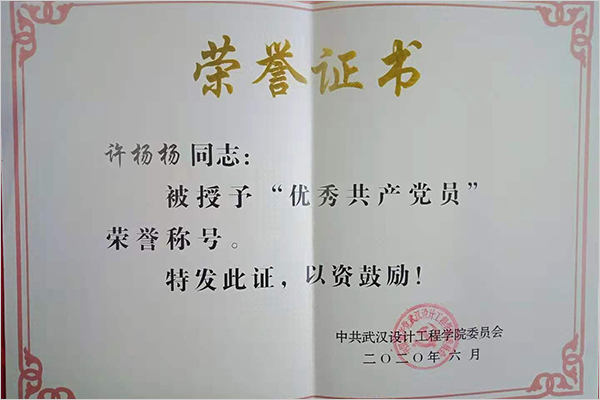 荣誉证书
许杨杨同志：
被授予“优秀共产党员”
荣誉称号。
特发此证，以资鼓励！
中共武汉设计工程学院委员会
二〇二〇年六月